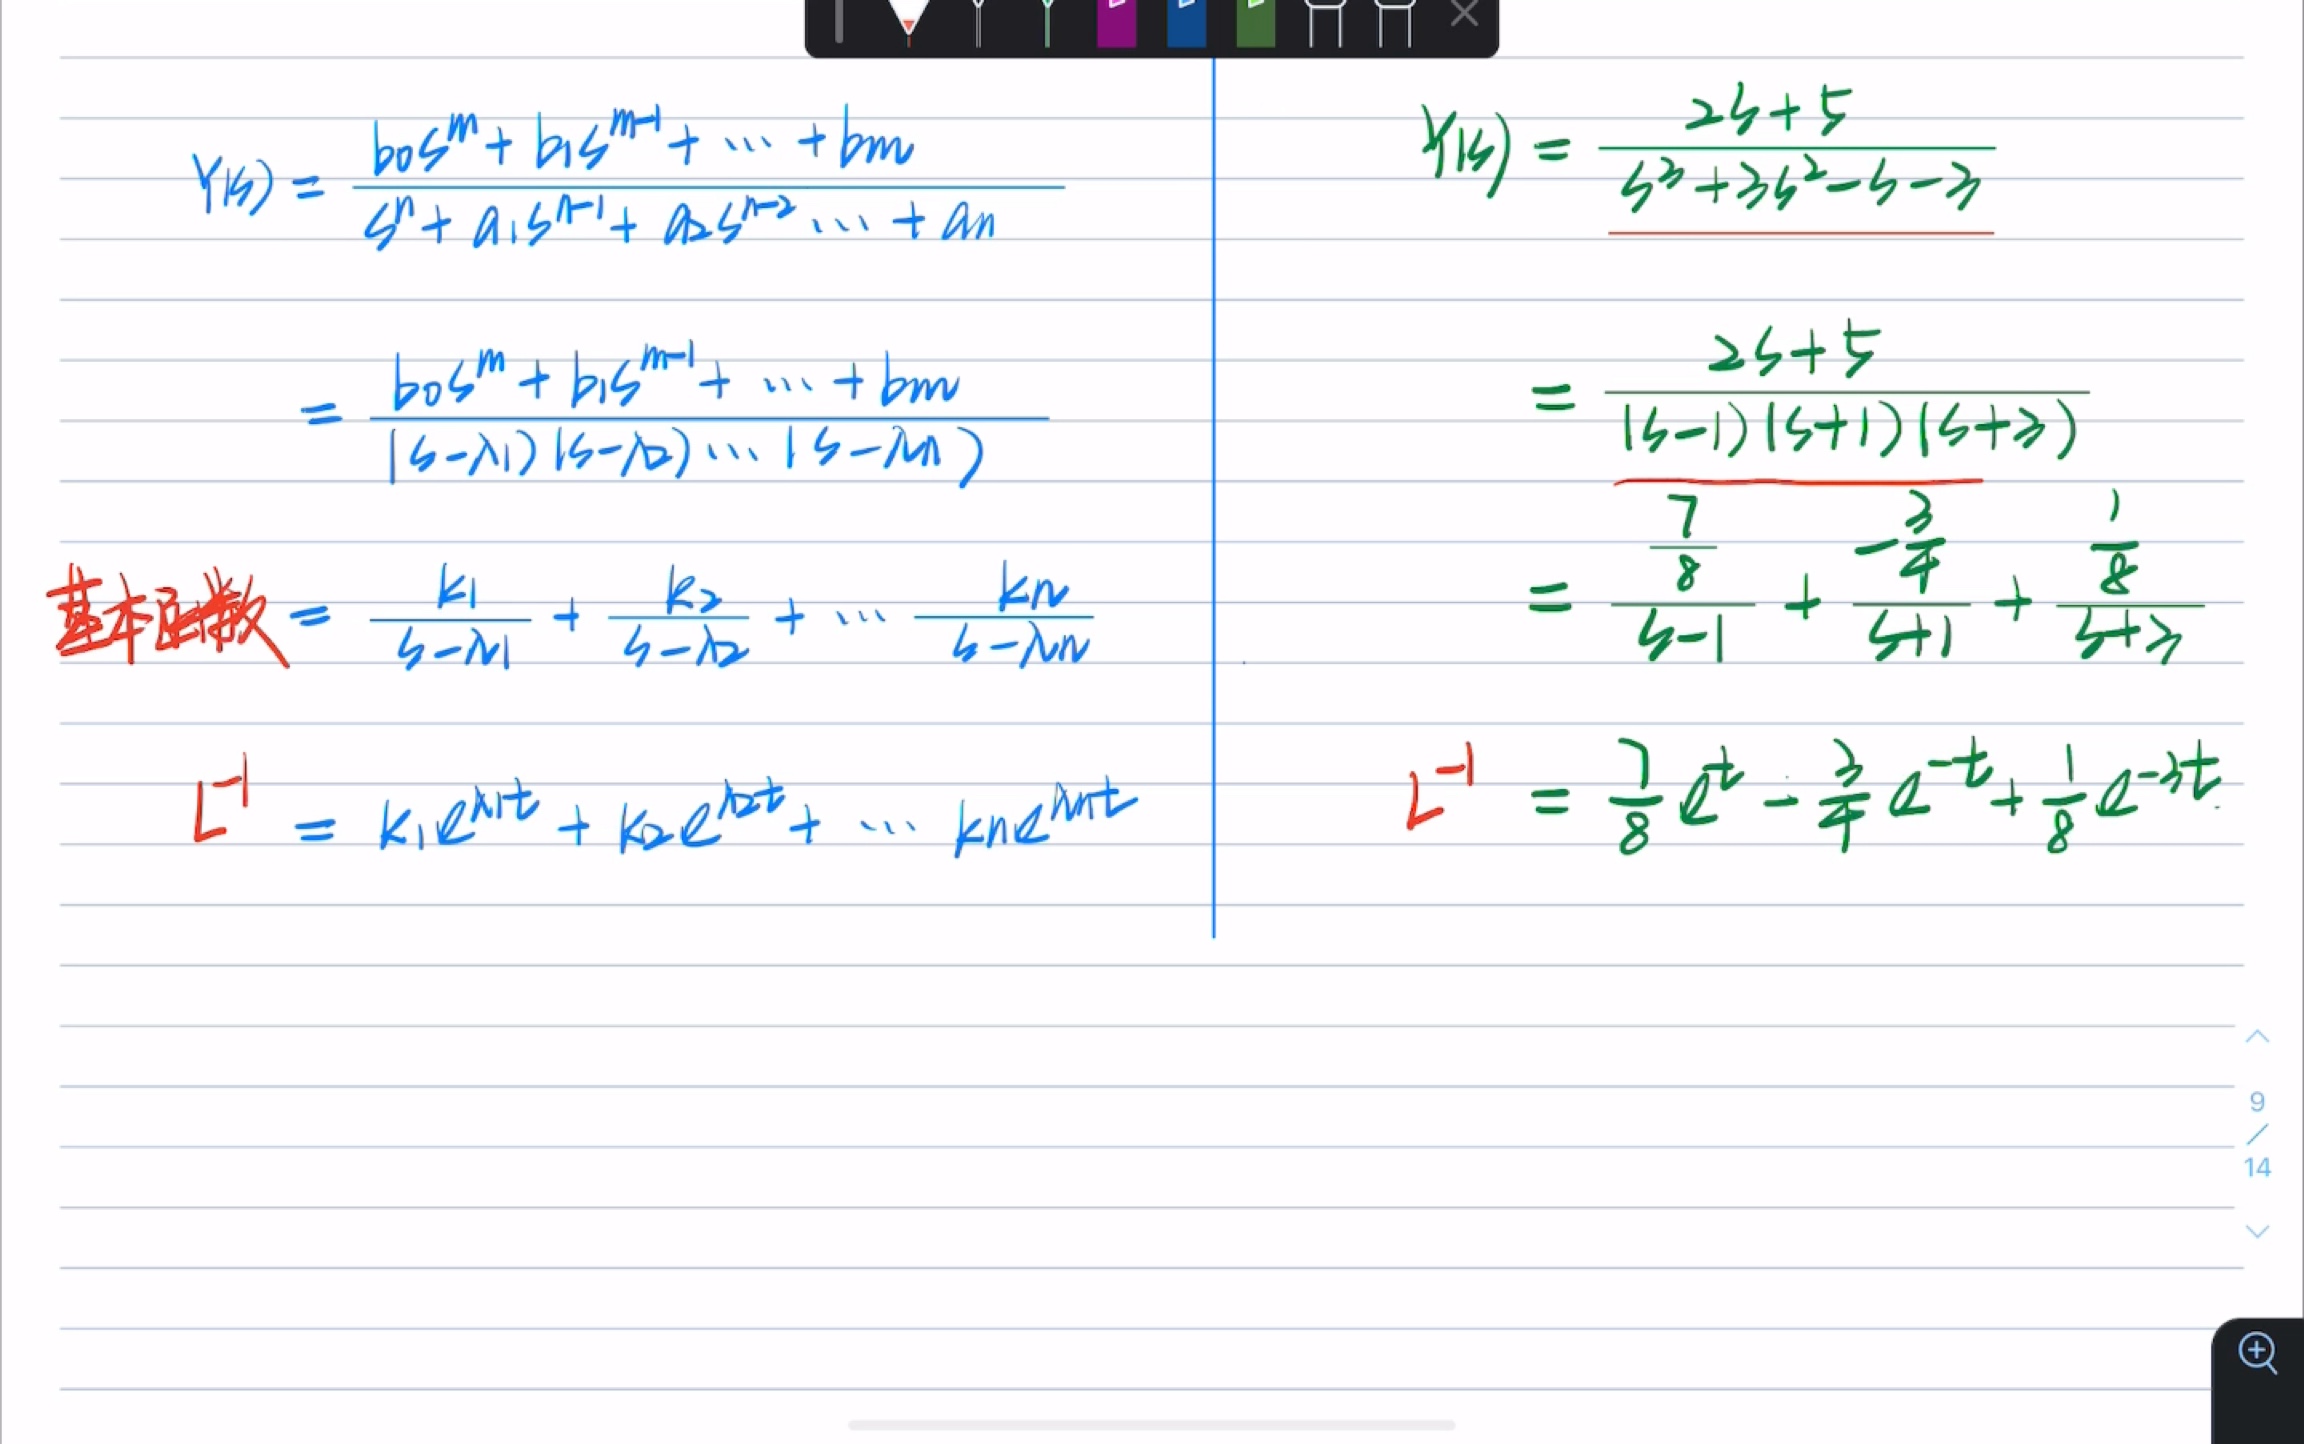 Y(s) = (b₀sᵐ + b₁sᵐ⁻¹ + … + bm) / (sⁿ + a₁sⁿ⁻¹ + a₂sⁿ⁻² … + an)
= (b₀sᵐ + b₁sᵐ⁻¹ + … + bm) / ((s-λ₁)(s-λ₂)…(s-λn))
基本函数 = k₁/(s-λ₁) + k₂/(s-λ₂) + … kn/(s-λn)
L⁻¹ = k₁e^(λ₁t) + k₂e^(λ₂t) + … kne^(λnt)
Y(s) = (2s+5) / (s³+3s²-s-3)
= (2s+5) / ((s-1)(s+1)(s+3))
= (7/8)/(s-1) + (-3/4)/(s+1) + (1/8)/(s+3)
L⁻¹ = 7/8 e^t - 3/4 e^(-t) + 1/8 e^(-3t).
9
/
14